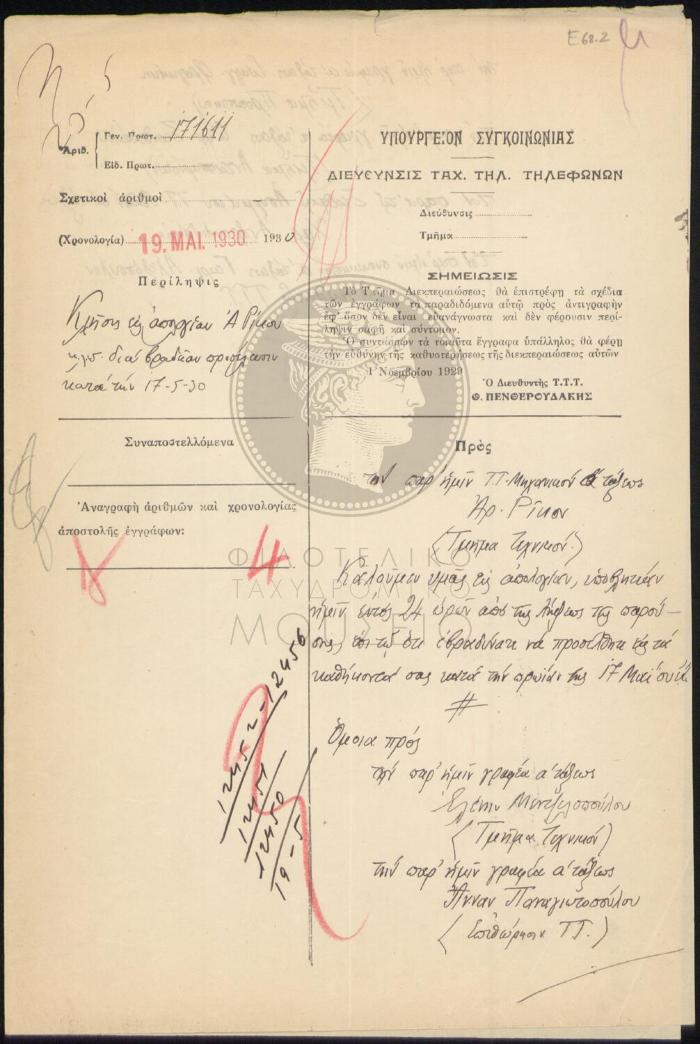 E 68.2
Ἀριθ.
Γεν. Πρωτ. 171611
Εἰδ. Πρωτ.
Σχετικοὶ ἀριθμοὶ
(Χρονολογία) 19. ΜΑΙ. 1930 1930
Περίληψις
Κλῆσις εἰς ἀπολογίαν Ἀ Ρίκου
κ.λπ. διὰ βραδεῖαν προσέλευσιν
κατὰ τὴν 17-5-30
Συναποστελλόμενα
Ἀναγραφὴ ἀριθμῶν καὶ χρονολογίας
ἀποστολῆς ἐγγράφων:
4
12452-12456
12451
12450
19-5
ΥΠΟΥΡΓΕΙΟΝ ΣΥΓΚΟΙΝΩΝΙΑΣ
ΔΙΕΥΘΥΝΣΙΣ ΤΑΧ. ΤΗΛ. ΤΗΛΕΦΩΝΩΝ
Διεύθυνσις
Τμῆμα
ΣΗΜΕΙΩΣΙΣ
Τὸ Τμῆμα Διεκπεραιώσεως θὰ ἐπιστρέφῃ τὰ σχέδια
τῶν ἐγγράφων τὰ παραδιδόμενα αὐτῷ πρὸς ἀντιγραφὴν
ἐφ' ὅσον δὲν εἶναι εὐανάγνωστα καὶ δὲν φέρουσιν περί-
ληψιν σαφῆ καὶ σύντομον.
Ὁ συντάσσων τὰ τοιαῦτα ἔγγραφα ὑπάλληλος θὰ φέρῃ
τὴν εὐθύνην τῆς καθυστερήσεως τῆς διεκπεραιώσεως αὐτῶν
1 Νοεμβρίου 1929
Ὁ Διευθυντὴς Τ.Τ.Τ.
Θ. ΠΕΝΘΕΡΟΥΔΑΚΗΣ
Πρὸς
τὸν παρ' ἡμῖν Τ.Τ. Μηχανικὸν α' τάξεως
Ἀρ. Ρίκον
(Τμῆμα Τεχνικόν.)
Καλοῦμεν ὑμᾶς εἰς ἀπολογίαν, ὑποβλητέαν
ἡμῖν ἐντὸς 24 ὡρῶν ἀπὸ τῆς λήψεως τῆς παρού-
σης, ἐπὶ τῷ ὅτι ἐβραδύνατε νὰ προσέλθητε εἰς τὰ
καθήκοντά σας κατὰ τὴν πρωΐαν τῆς 17 Μαΐου
#
Ὅμοια πρὸς
τὴν παρ' ἡμῖν γραφέα α' τάξεως
Ἑλένην Μεντζελοπούλου
(Τμῆμα Τεχνικόν)
τὴν παρ' ἡμῖν γραφέα α' τάξεως
Ἄνναν Παναγιωτοπούλου
(Ἐπιθεώρησιν Τ.Τ.)
ΦΙΛΟΤΕΛΙΚΟ
ΤΑΧΥΔΡΟΜΙΚΟ
ΜΟΥΣΕΙΟ